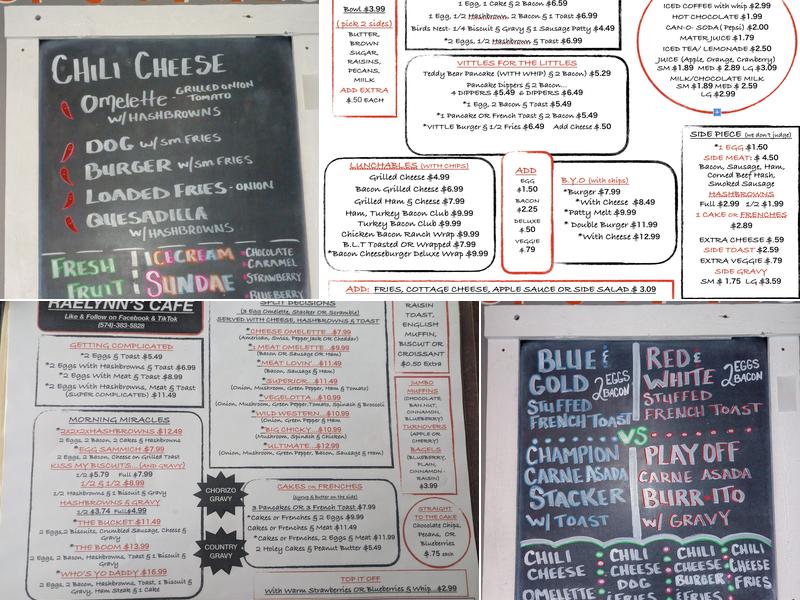 CHILI CHEESE
Omelette - GRILLED ONION
TOMATO
W/HASHBROWNS
DOG w/sm FRIES
BURGER w/sm FRIES
LOADED FRIES - ONION
QUESADILLA
W/HASHBROWNS
FRESH
FRUIT
ICECREAM
SUNDAE
CHOCOLATE
CARAMEL
STRAWBERRY
BLUEBERRY
Bowl $3.99
( pick 2 sides)
BUTTER,
BROWN
SUGAR,
RAISINS,
PECANS,
MILK
ADD EXTRA
$.50 EACH
1 Egg, 1 Cake & 2 Bacon $6.59
1 Egg, 1/2 Hashbrown, 2 Bacon & 1 Toast $6.99
Birds Nest- 1/4 Biscuit & Gravy & 1 Sausage Patty $4.49
*2 Eggs, 1/2 Hashbrown & 1 Toast $6.99
VITTLES FOR THE LITTLES
Teddy Bear Pancake (WITH WHIP) & 2 Bacon) $5.29
Pancake Dippers & 2 Bacon...
4 DIPPERS $5.49 6 DIPPERS $6.49
*1 Egg, 2 Bacon & Toast $5.49
*1 Pancake OR French Toast & 2 Bacon $5.49
*VITTLE Burger & 1/2 Fries $6.49 Add Cheese $.50
ICED COFFEE with whip $2.99
HOT CHOCOLATE $1.99
CAN-O- SODA ( Pepsi) $2.00
MATER JUICE $1.79
ICED TEA/ LEMONADE $2.50
JUICE (Apple, Orange, Cranberry)
SM $1.89 MED $ 2.89 LG $3.09
MILK/CHOCOLATE MILK
SM $1.89 MED $ 2.59
LG $2.99
LUNCHABLES (WITH CHIPS)
Grilled Cheese $4.99
Bacon Grilled Cheese $6.99
Grilled Ham & Cheese $7.99
Ham, Turkey Bacon Club $9.99
Turkey Bacon Club $9.99
Chicken Bacon Ranch Wrap $9.99
B.L.T Toasted OR Wrapped $7.99
*Bacon Cheeseburger Deluxe Wrap $9.99
ADD
EGG
$1.50
BACON
$2.25
DELUXE
$.50
VEGGIE
$.79
B.Y.O (with chips)
*Burger $7.99
*With Cheese $8.49
*Patty Melt $9.99
* Double Burger $11.99
*With Cheese $12.99
SIDE PIECE (we don't judge)
*1 EGG $1.50
SIDE MEAT: $ 4.50
Bacon, Sausage, Ham,
Corned Beef Hash,
Smoked Sausage
HASHBROWNS
Full $2.99 1/2 $1.99
1 CAKE or FRENCHES
$2.89
EXTRA CHEESE $.59
SIDE TOAST $2.59
EXTRA VEGGIE $.79
SIDE GRAVY
SM $ 1.75 LG $3.59
ADD: FRIES, COTTAGE CHEESE, APPLE SAUCE OR SIDE SALAD $ 3.09
RAELYNN'S CAFE
Like & Follow on Facebook & TikTok
(574)-383-5828
GETTING COMPLICATED
*2 Eggs & Toast $5.49
*2 Eggs With Hashbrowns & Toast $6.99
*2 Eggs With Meat & Toast $8.99
*2 Eggs With Hashbrowns, Meat & Toast
(SUPER COMPLICATED) $11.49
MORNING MIRACLES
*2X2X2XHASHBROWNS $12.49
2 Eggs, 2 Bacon, 2 Cakes & Hashbrowns
*EGG SAMMICH $7.99
2 Eggs, 2 Bacon, Cheese on Grilled Toast
KISS MY BISCUITS... (AND GRAVY)
1/2 $5.79 Full $7.99
1/2 & 1/2 $8.99
1/2 Hashbrowns & 1 Biscuit & Gravy
HASHBROWNS & GRAVY
1/2 $3.74 Full $4.99
*THE BUCKET $11.49
2 Eggs, 2 Biscuits, Crumbled Sausage, Cheese &
Gravy
*THE BOOM $13.99
2 Eggs, 2 Bacon, Hashbrowns, Toast & 1 Biscuit &
Gravy
*WHO'S YO DADDY $16.99
2 Eggs, 2 Bacon, Hashbrowns, Toast, 1 Biscuit &
Gravy, Ham Steak & 1 Cake
CHORIZO
GRAVY
COUNTRY
GRAVY
SPLIT DECISIONS
(3 Egg Omelette, Stacker OR Scramble)
SERVED WITH CHEESE, HASHBROWNS & TOAST
*CHEESE OMELETTE...$7.99
(American, Swiss, Pepper Jack OR Cheddar)
*1 MEAT OMELETTE...$9.99
(Bacon OR Sausage OR Ham)
*MEAT LOVIN'...$11.49
(Bacon, Sausage & Ham)
*SUPERIOR...$11.49
(Onion, Mushroom, Green Pepper, Ham & Tomato)
*VEGELOTTA...$10.99
(Onion, Mushroom, Green Pepper, Tomato, Spinach & Broccoli)
*WILD WESTERN...$10.99
(Onion, Green Pepper & Ham)
*BIG CHICKY...$10.99
(Mushroom, Spinach & Chicken)
*ULTIMATE...$12.99
(Onion, Mushroom, Green Pepper, Bacon, Sausage & Ham)
CAKES or FRENCHES
(syrup & butter on the side)
3 Pancakes OR 3 French Toast $7.99
*Cakes or Frenches & 2 Eggs $9.99
Cakes or Frenches & Meat $11.49
*Cakes or Frenches, 2 Eggs & Meat $11.99
2 Holey Cakes & Peanut Butter $5.49
TOP IT OFF
With Warm Strawberries OR Blueberries & Whip...$2.99
RAISIN
TOAST,
ENGLISH
MUFFIN,
BISCUIT OR
CROISSANT
$0.50 Extra
JUMBO
MUFFINS
(CHOCOLATE,
BAN.NUT,
CINNAMON,
BLUEBERRY)
TURNOVERS
(APPLE OR
CHERRY)
BAGELS
(BLUEBERRY,
PLAIN,
CINNAMON-
RAISIN)
$3.99
STRAIGHT
TO THE CAKE
Chocolate Chips,
Pecans, OR
Blueberries
$.75 each
BLUE &
GOLD 2 EGGS
BACON
STUFFED
FRENCH TOAST
VS
RED &
WHITE 2 EGGS
BACON
STUFFED
FRENCH TOAST
CHAMPION
CARNE ASADA
STACKER
W/ TOAST
PLAY OFF
CARNE ASADA
BURR-ITO
W/ GRAVY
CHILI
CHEESE
OMELETTE
CHILI
CHEESE
DOG
& FRIES
CHILI
CHEESE
BURGER
& FRIES
CHILI
CHEESE
FRIES